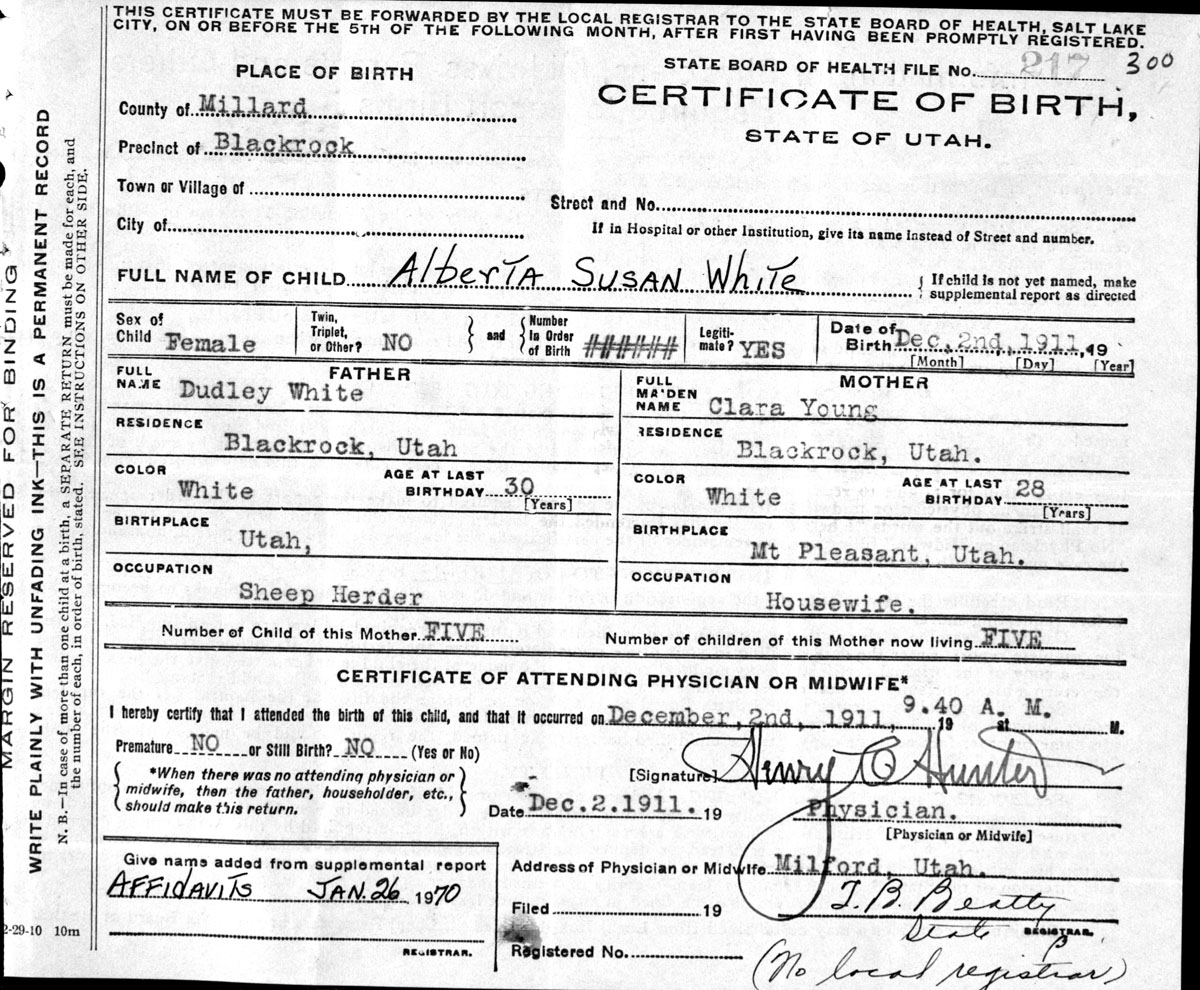 THIS CERTIFICATE MUST BE FORWARDED BY THE LOCAL REGISTRAR TO THE STATE BOARD OF HEALTH, SALT LAKE
CITY, ON OR BEFORE THE 5TH OF THE FOLLOWING MONTH, AFTER FIRST HAVING BEEN PROMPTLY REGISTERED.
PLACE OF BIRTH
STATE BOARD OF HEALTH FILE No. 217 300
CERTIFICATE OF BIRTH,
STATE OF UTAH.
County of Millard
Precinct of Blackrock
Town or Village of
Street and No.
City of
If in Hospital or other Institution, give its name instead of Street and number.
FULL NAME OF CHILD Alberta Susan White
{ If child is not yet named, make
supplemental report as directed
Sex of Child Female
Twin, Triplet, or Other? NO } and { Number In Order of Birth ######
Legiti-mate? YES
Date of Birth Dec. 2nd, 1911, 19
[Month] [Day] [Year]
FATHER
FULL NAME Dudley White
MOTHER
FULL MAIDEN NAME Clara Young
RESIDENCE Blackrock, Utah
RESIDENCE Blackrock, Utah.
COLOR White AGE AT LAST BIRTHDAY 30 [Years]
COLOR White AGE AT LAST BIRTHDAY 28 [Years]
BIRTHPLACE Utah,
BIRTHPLACE Mt Pleasant, Utah.
OCCUPATION Sheep Herder
OCCUPATION Housewife.
Number of Child of this Mother FIVE
Number of children of this Mother now living FIVE
CERTIFICATE OF ATTENDING PHYSICIAN OR MIDWIFE*
I hereby certify that I attended the birth of this child, and that it occurred on December, 2nd, 1911, 19 at 9.40 A. M. M.
Premature NO or Still Birth? NO (Yes or No)
{ *When there was no attending physician or
midwife, then the father, householder, etc.,
should make this return. }
[Signature] Henry C Hunter
Date Dec. 2. 1911. 19
Physician.
[Physician or Midwife]
Give name added from supplemental report
AFFIDAVITS JAN. 26 1970
REGISTRAR.
Address of Physician or Midwife Milford, Utah.
Filed 19
T. B. Beatty
State REGISTRAR.
Registered No.
(No local registrar)
MARGIN RESERVED FOR BINDING
WRITE PLAINLY WITH UNFADING INK—THIS IS A PERMANENT RECORD
N. B.—In case of more than one child at a birth, a SEPARATE RETURN must be made for each, and
the number of each, in order of birth, stated. SEE INSTRUCTIONS ON OTHER SIDE.
2-29-10 10m